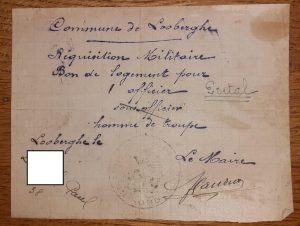 Commune de Looberghe
Réquisition Militaire
Bon de logement pour
1 officier
sous officier
homme de troupe
Looberghe le
Le Maire